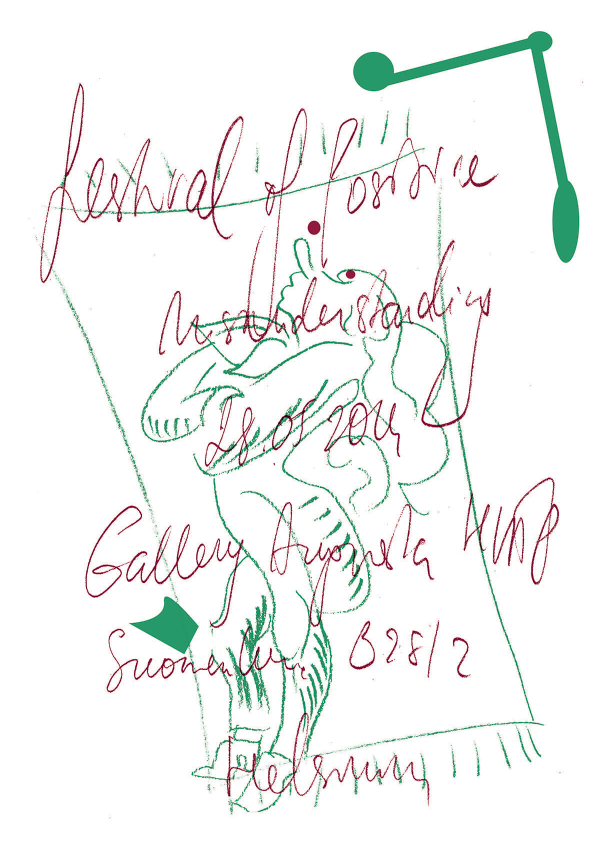 Festival of Positive
Misunderstandings
28.05.2014
Gallery Augusta HIAP
Suomenlinna B28/2
Helsinki